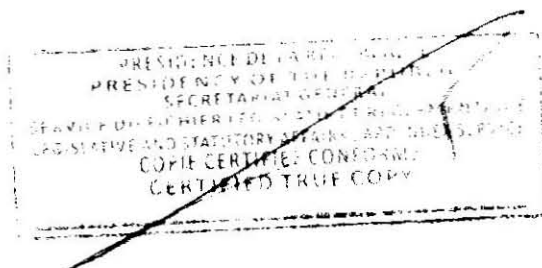 PRESIDENCE DE LA
PRESIDENCY OF THE REPUBLIC
SECRETARIAT GENERAL
SERVICE DU FICHIER LEGISLATIF ET REGLEMENTAIRE
LEGISLATIVE AND STATUTORY AFFAIRS CARD INDEX SERVICE
COPIE CERTIFIEE CONFORME
CERTIFIED TRUE COPY